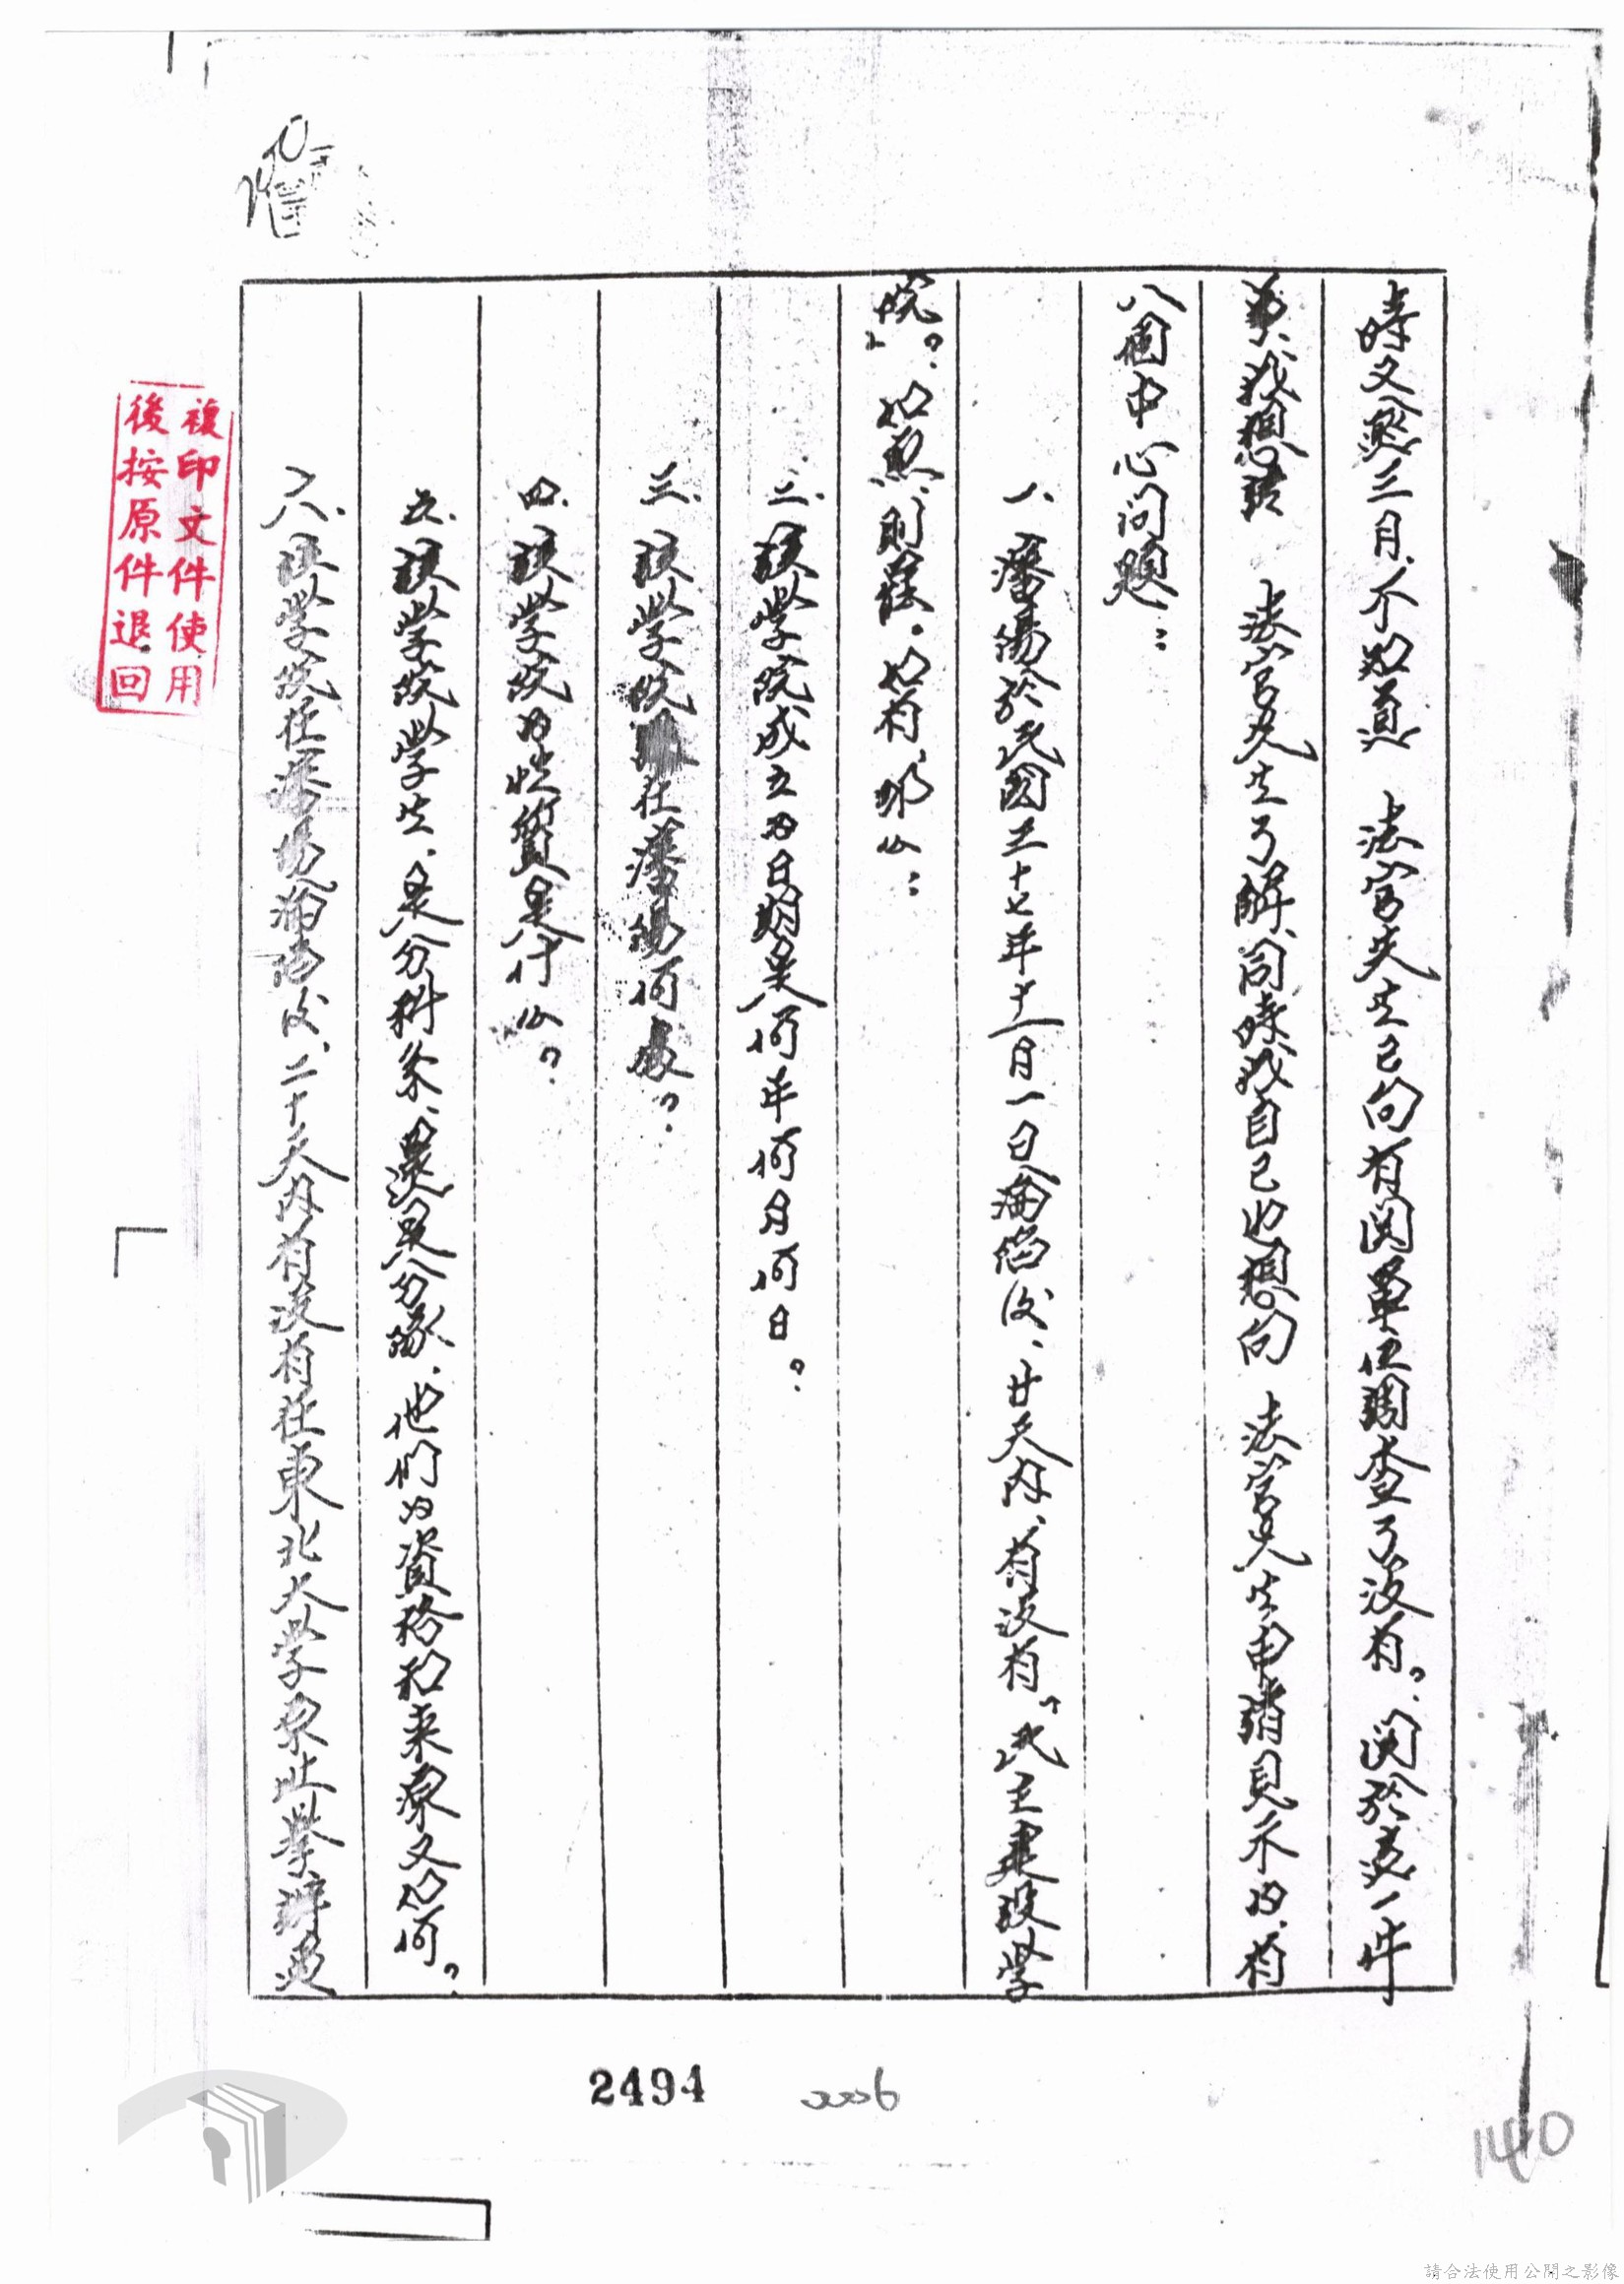 時又逾三月、不知道 法官先生已向有関單位調查了没有？関於這一件
事、我想請 法官先生了解、同時我自己也想向 法官先生申請見示的、有
八個中心问题：
一、瀋陽於民國三十七年十一月一日淪陷後、廿天内、有没有「民主建設学
院」？如無、則罷。如有、那么：
二、該学院成立的日期是何年何月何日？
三、該学院在瀋陽何處？
四、該学院的性質是什么？
五、該学院学生、是分科系、還是分隊、他們的資格和来源又如何？
六、該学院在瀋陽淪陷後、二十天内有没有在東北大学原址舉辦過
複印文件使用
後按原件退回
2494
0006
140
請合法使用公開之影像